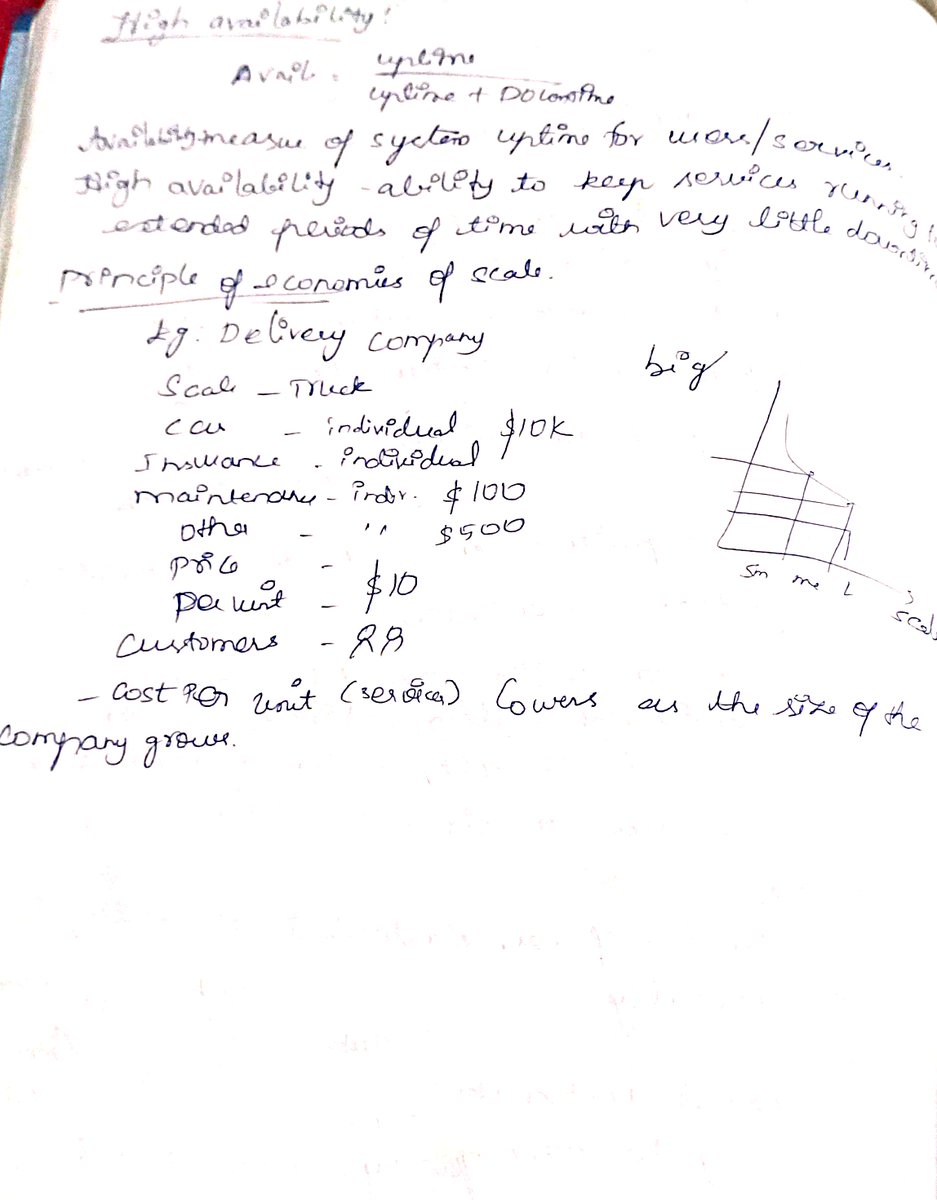 High availability:
Avail = uptime
uptime + Downtime
Availability-measure of system uptime for users/services.
High availability - ability to keep services running
extended periods of time with very little
principle of economies of scale.
Eg. Delivery company
big
Scale - Truck
car - individual $10K
Insurance - individual
maintenance - indiv. $100
Other - " $500
price -
Per unit - $10
Sm me L
scale
Customers -
- Cost Per unit (services) lowers as the size of the
company grows.